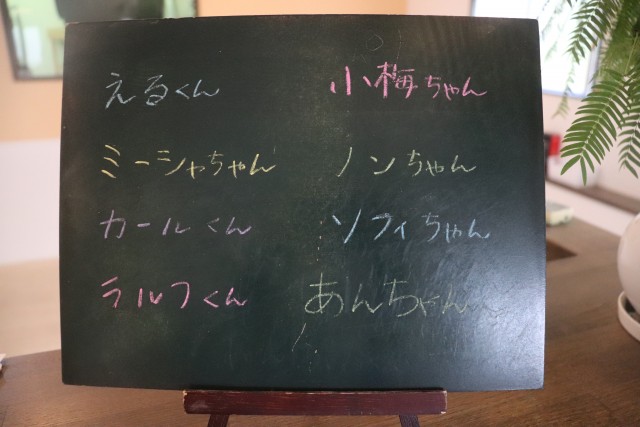 えるくん
ミーシャちゃん
カールくん
ラルフくん
小梅ちゃん
ノンちゃん
ソフィちゃん
あんちゃん